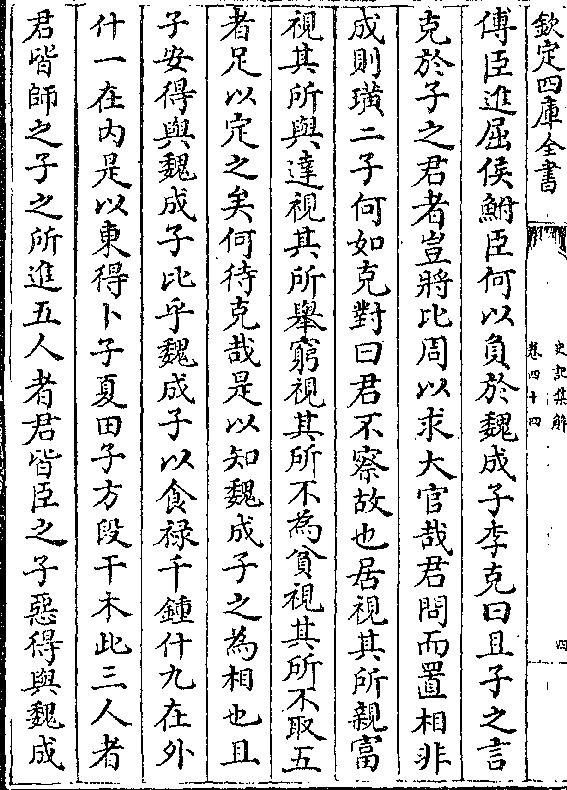 欽定四庫全書
史記集解
卷四十四
四
傅臣進屈侯鮒臣何以負於魏成子李克曰且子之言
克於子之君者豈將比周以求大官哉君問而置相非
成則璜二子何如克對曰君不察故也居視其所親富
視其所與達視其所舉窮視其所不為貧視其所不取五
者足以定之矣何待克哉是以知魏成子之為相也且
子安得與魏成子比乎魏成子以食祿千鍾什九在外
什一在內是以東得卜子夏田子方段干木此三人者
君皆師之子之所進五人者君皆臣之子惡得與魏成